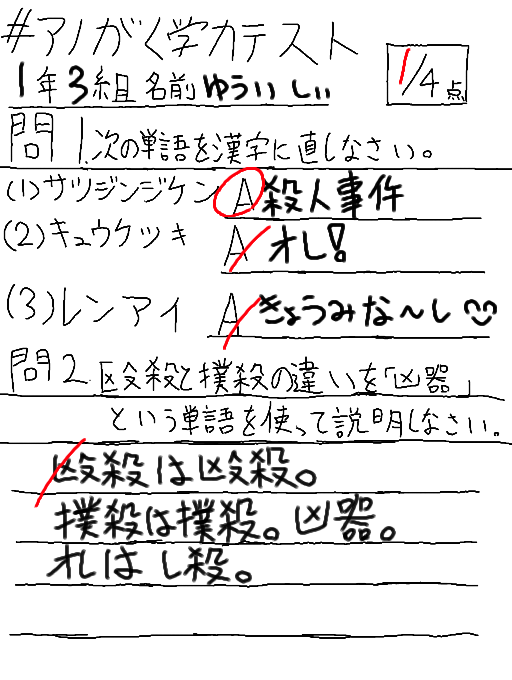 #アノがく学力テスト
1年3組 名前 ゆういしい
1/4点
問1.次の単語を漢字に直しなさい。
(1)サツジンジケン A 殺人事件
(2)キュウケツキ A オレ!
(3)レンアイ A きょうみな〜し
問2 殴殺と撲殺の違いを「凶器」
という単語を使って説明しなさい。
殴殺は殴殺。
撲殺は撲殺。凶器。
オレはし殺。